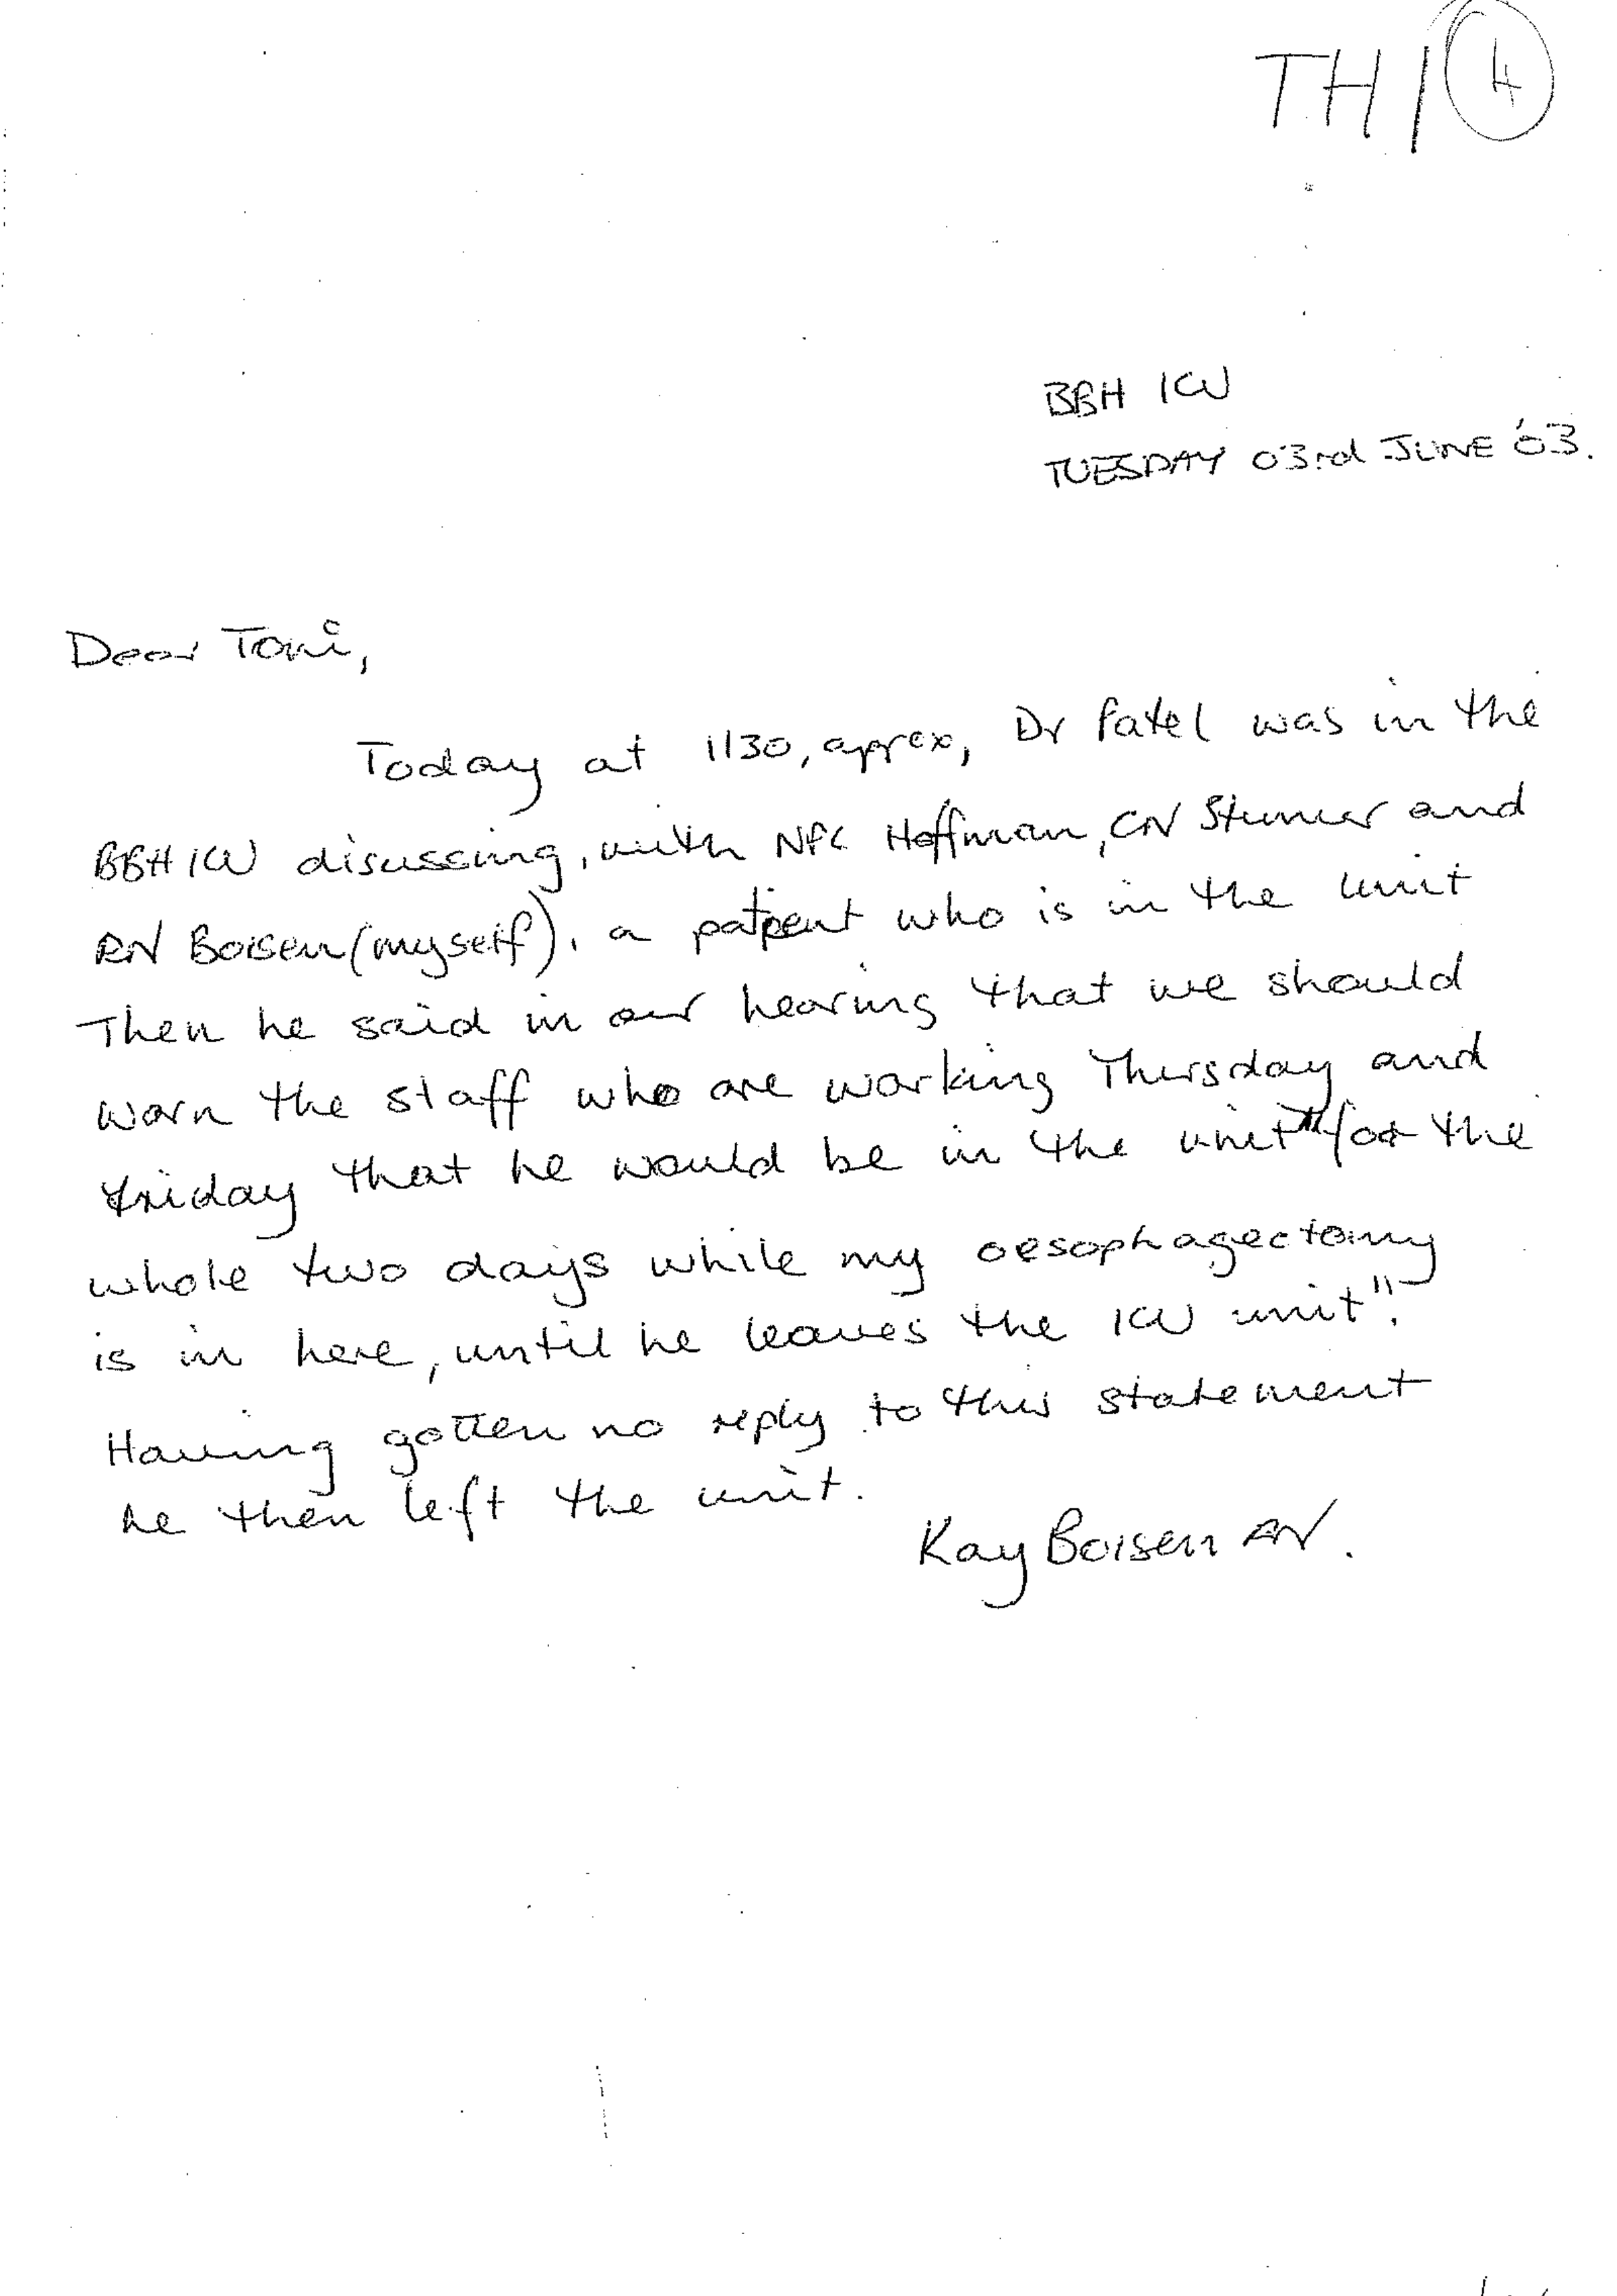 TH1 4
BBH ICU
TUESDAY 03rd JUNE '03.
Dear Toni,
Today at 1130, aprox, Dr Patel was in the
BBH ICU disussing, with NPC Hoffman, CN Stumer and
RN Boisen (myself), a patient who is in the unit
Then he said in our hearing that we should
warn the staff who are working Thursday and
Friday that he would be in the unit "for the
whole two days while my oesophagectomy
is in here, until he leaves the ICU unit".
Having gotten no reply to this statement
he then left the unit.
Kay Boisen RN.